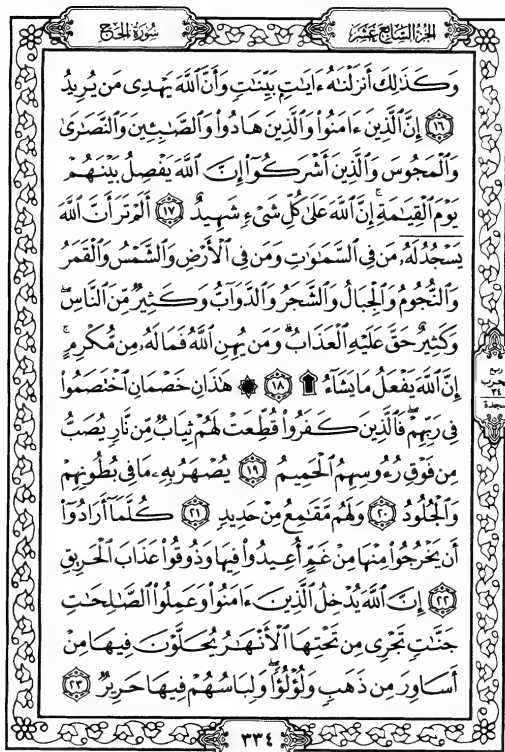 سُورَةُ الحَجّ
الجُزءُ السَّابِعَ عَشَرَ
وَكَذَٰلِكَ أَنزَلْنَٰهُ ءَايَٰتٍۭ بَيِّنَٰتٍ وَأَنَّ ٱللَّهَ يَهْدِى مَن يُرِيدُ
﴿١٦﴾ إِنَّ ٱلَّذِينَ ءَامَنُوا۟ وَٱلَّذِينَ هَادُوا۟ وَٱلصَّٰبِـِٔينَ وَٱلنَّصَٰرَىٰ
وَٱلْمَجُوسَ وَٱلَّذِينَ أَشْرَكُوٓا۟ إِنَّ ٱللَّهَ يَفْصِلُ بَيْنَهُمْ
يَوْمَ ٱلْقِيَٰمَةِ ۚ إِنَّ ٱللَّهَ عَلَىٰ كُلِّ شَىْءٍ شَهِيدٌ ﴿١٧﴾ أَلَمْ تَرَ أَنَّ ٱللَّهَ
يَسْجُدُ لَهُۥ مَن فِى ٱلسَّمَٰوَٰتِ وَمَن فِى ٱلْأَرْضِ وَٱلشَّمْسُ وَٱلْقَمَرُ
وَٱلنُّجُومُ وَٱلْجِبَالُ وَٱلشَّجَرُ وَٱلدَّوَآبُّ وَكَثِيرٌ مِّنَ ٱلنَّاسِ ۖ
وَكَثِيرٌ حَقَّ عَلَيْهِ ٱلْعَذَابُ ۗ وَمَن يُهِنِ ٱللَّهُ فَمَا لَهُۥ مِن مُّكْرِمٍ ۚ
إِنَّ ٱللَّهَ يَفْعَلُ مَا يَشَآءُ ۩ ﴿١٨﴾ ۞ هَٰذَانِ خَصْمَانِ ٱخْتَصَمُوا۟
فِى رَبِّهِمْ ۖ فَٱلَّذِينَ كَفَرُوا۟ قُطِّعَتْ لَهُمْ ثِيَابٌ مِّن نَّارٍ يُصَبُّ
مِن فَوْقِ رُءُوسِهِمُ ٱلْحَمِيمُ ﴿١٩﴾ يُصْهَرُ بِهِۦ مَا فِى بُطُونِهِمْ
وَٱلْجُلُودُ ﴿٢٠﴾ وَلَهُم مَّقَٰمِعُ مِنْ حَدِيدٍ ﴿٢١﴾ كُلَّمَآ أَرَادُوٓا۟
أَن يَخْرُجُوا۟ مِنْهَا مِنْ غَمٍّ أُعِيدُوا۟ فِيهَا وَذُوقُوا۟ عَذَابَ ٱلْحَرِيقِ
﴿٢٢﴾ إِنَّ ٱللَّهَ يُدْخِلُ ٱلَّذِينَ ءَامَنُوا۟ وَعَمِلُوا۟ ٱلصَّٰلِحَٰتِ
جَنَّٰتٍ تَجْرِى مِن تَحْتِهَا ٱلْأَنْهَٰرُ يُحَلَّوْنَ فِيهَا مِنْ
أَسَاوِرَ مِن ذَهَبٍ وَلُؤْلُؤًا ۖ وَلِبَاسُهُمْ فِيهَا حَرِيرٌ ﴿٢٣﴾
ربع
الحزب
٣٤
سجدة
٣٣٤